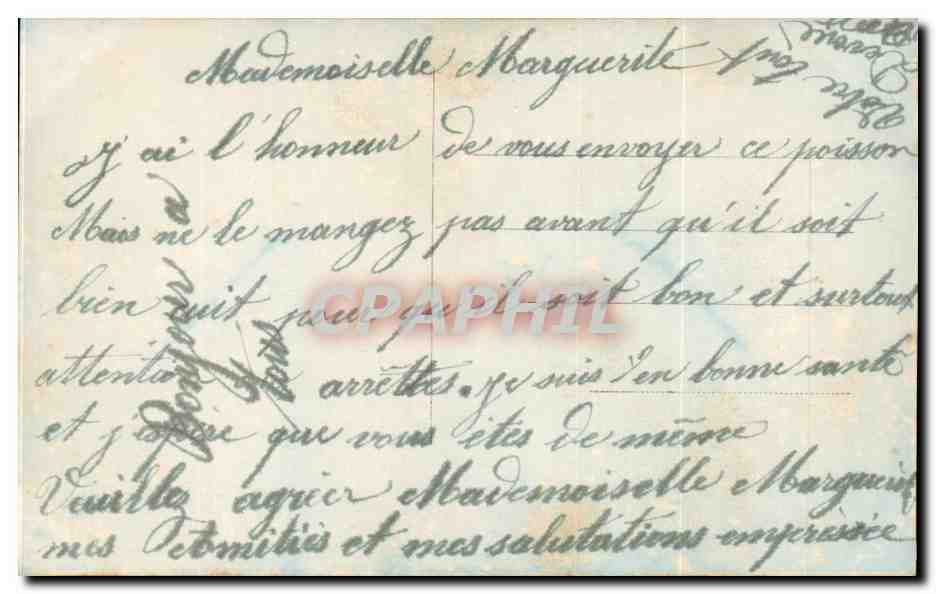 Mademoiselle Marguerite
j'ai l'honneur de vous envoyer ce poisson
Mais ne le mangez pas avant qu'il soit
bien cuit pour qu'il soit bon et surtout
attention arrêttes. je suis en bonne santé
et j'espère que vous êtes de même
Veuillez agréer Mademoiselle Marguerite
mes Amitiés et mes salutations empressée
Bonjour a
tous
Votre tout
CPAPHIL